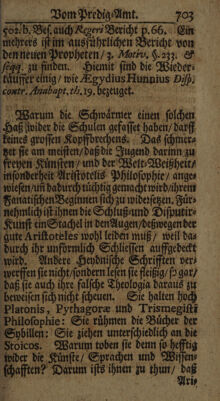 Vom Predig-Amt. 703
502. b. Bes. auch Regeri Bericht p. 66. Ein
mehrers ist im ausführlichern Bericht von
den neuen Propheten / 3. Motiv, §. 233. &
seqq. zu finden. Hiemit sind die Wieder-
täuffer einig / wie Ægydius Hunnius Disp.
contr. Anabapt. th. 19. bezeuget.
Warum die Schwärmer einen solchen
Haß wider die Schulen gefasset haben / darff
keines grossen Kopffbrechens. Das schmer-
zet sie am meisten / daß die Jugend darinn zu
freyen Künsten / und der Welt-Weißheit /
insonderheit Aristotelis Philosophie / ange
wiesen / uñ dadurch tüchtig gemacht wird / ihrem
Fanatischen Beginnen sich zu widersetzen. Für-
nehmlich ist ihnen die Schluß- und Disputir-
Kunst ein Stachel in den Augen / deßwegen der
gute Aristoteles wohl leiden muß / weil das
durch ihr unförmlich Schliessen auffgedeckt
wird. Andere Heydnische Schrifften ver-
werffen sie nicht / sondern lesen sie fleißig / so gar /
daß sie auch ihre falsche Theologia daraus zu
beweisen sich nicht scheuen. Sie halten hoch
Platonis, Pythagoræ und Trismegisti
Philosophie: Sie rühmen die Bücher der
Sybillen: Sie ziehen unterschiedlich an die
Stoicos. Warum toben sie denn so hefftig
wider die Künste / Sprachen und Wissen-
schafften? Darum ists ihnen zu thun / daß
Aris